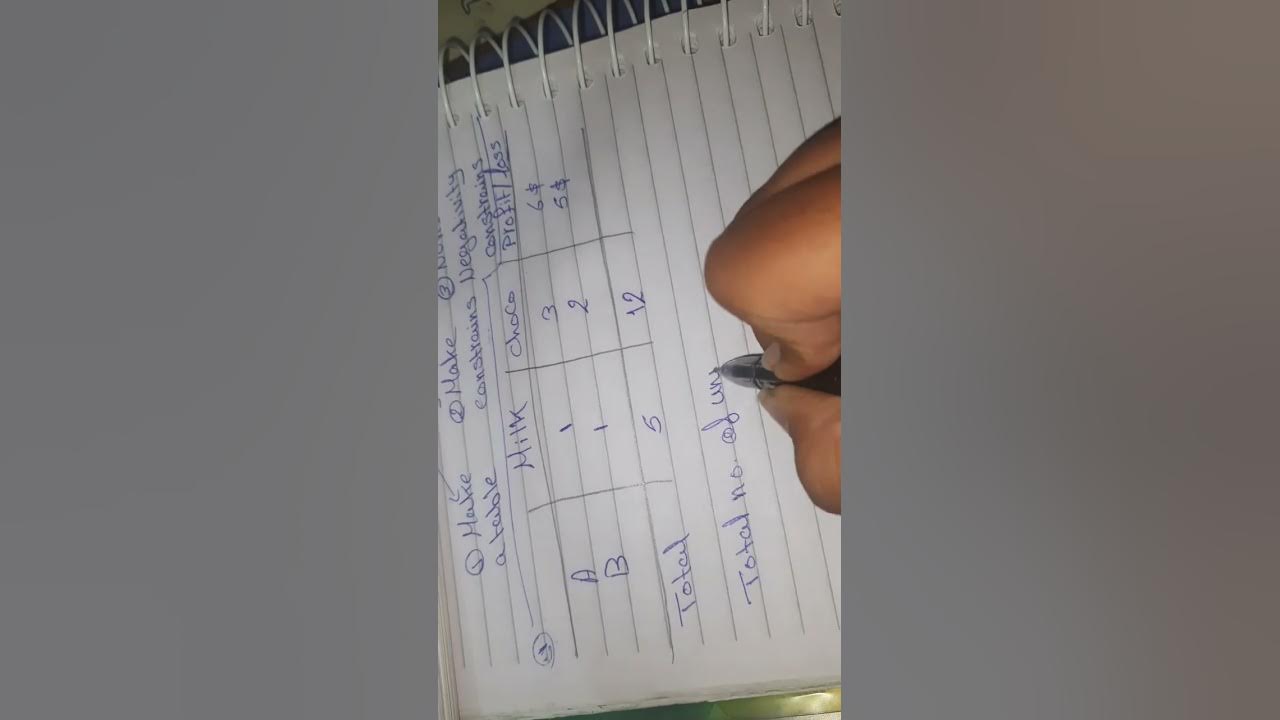 ① Make ② Make ③
a table constrains Negativity
constrains
Milk Choco Profit/loss
A 1 3 6$
B 1 2 5$
Total 5 12
Total no. of un